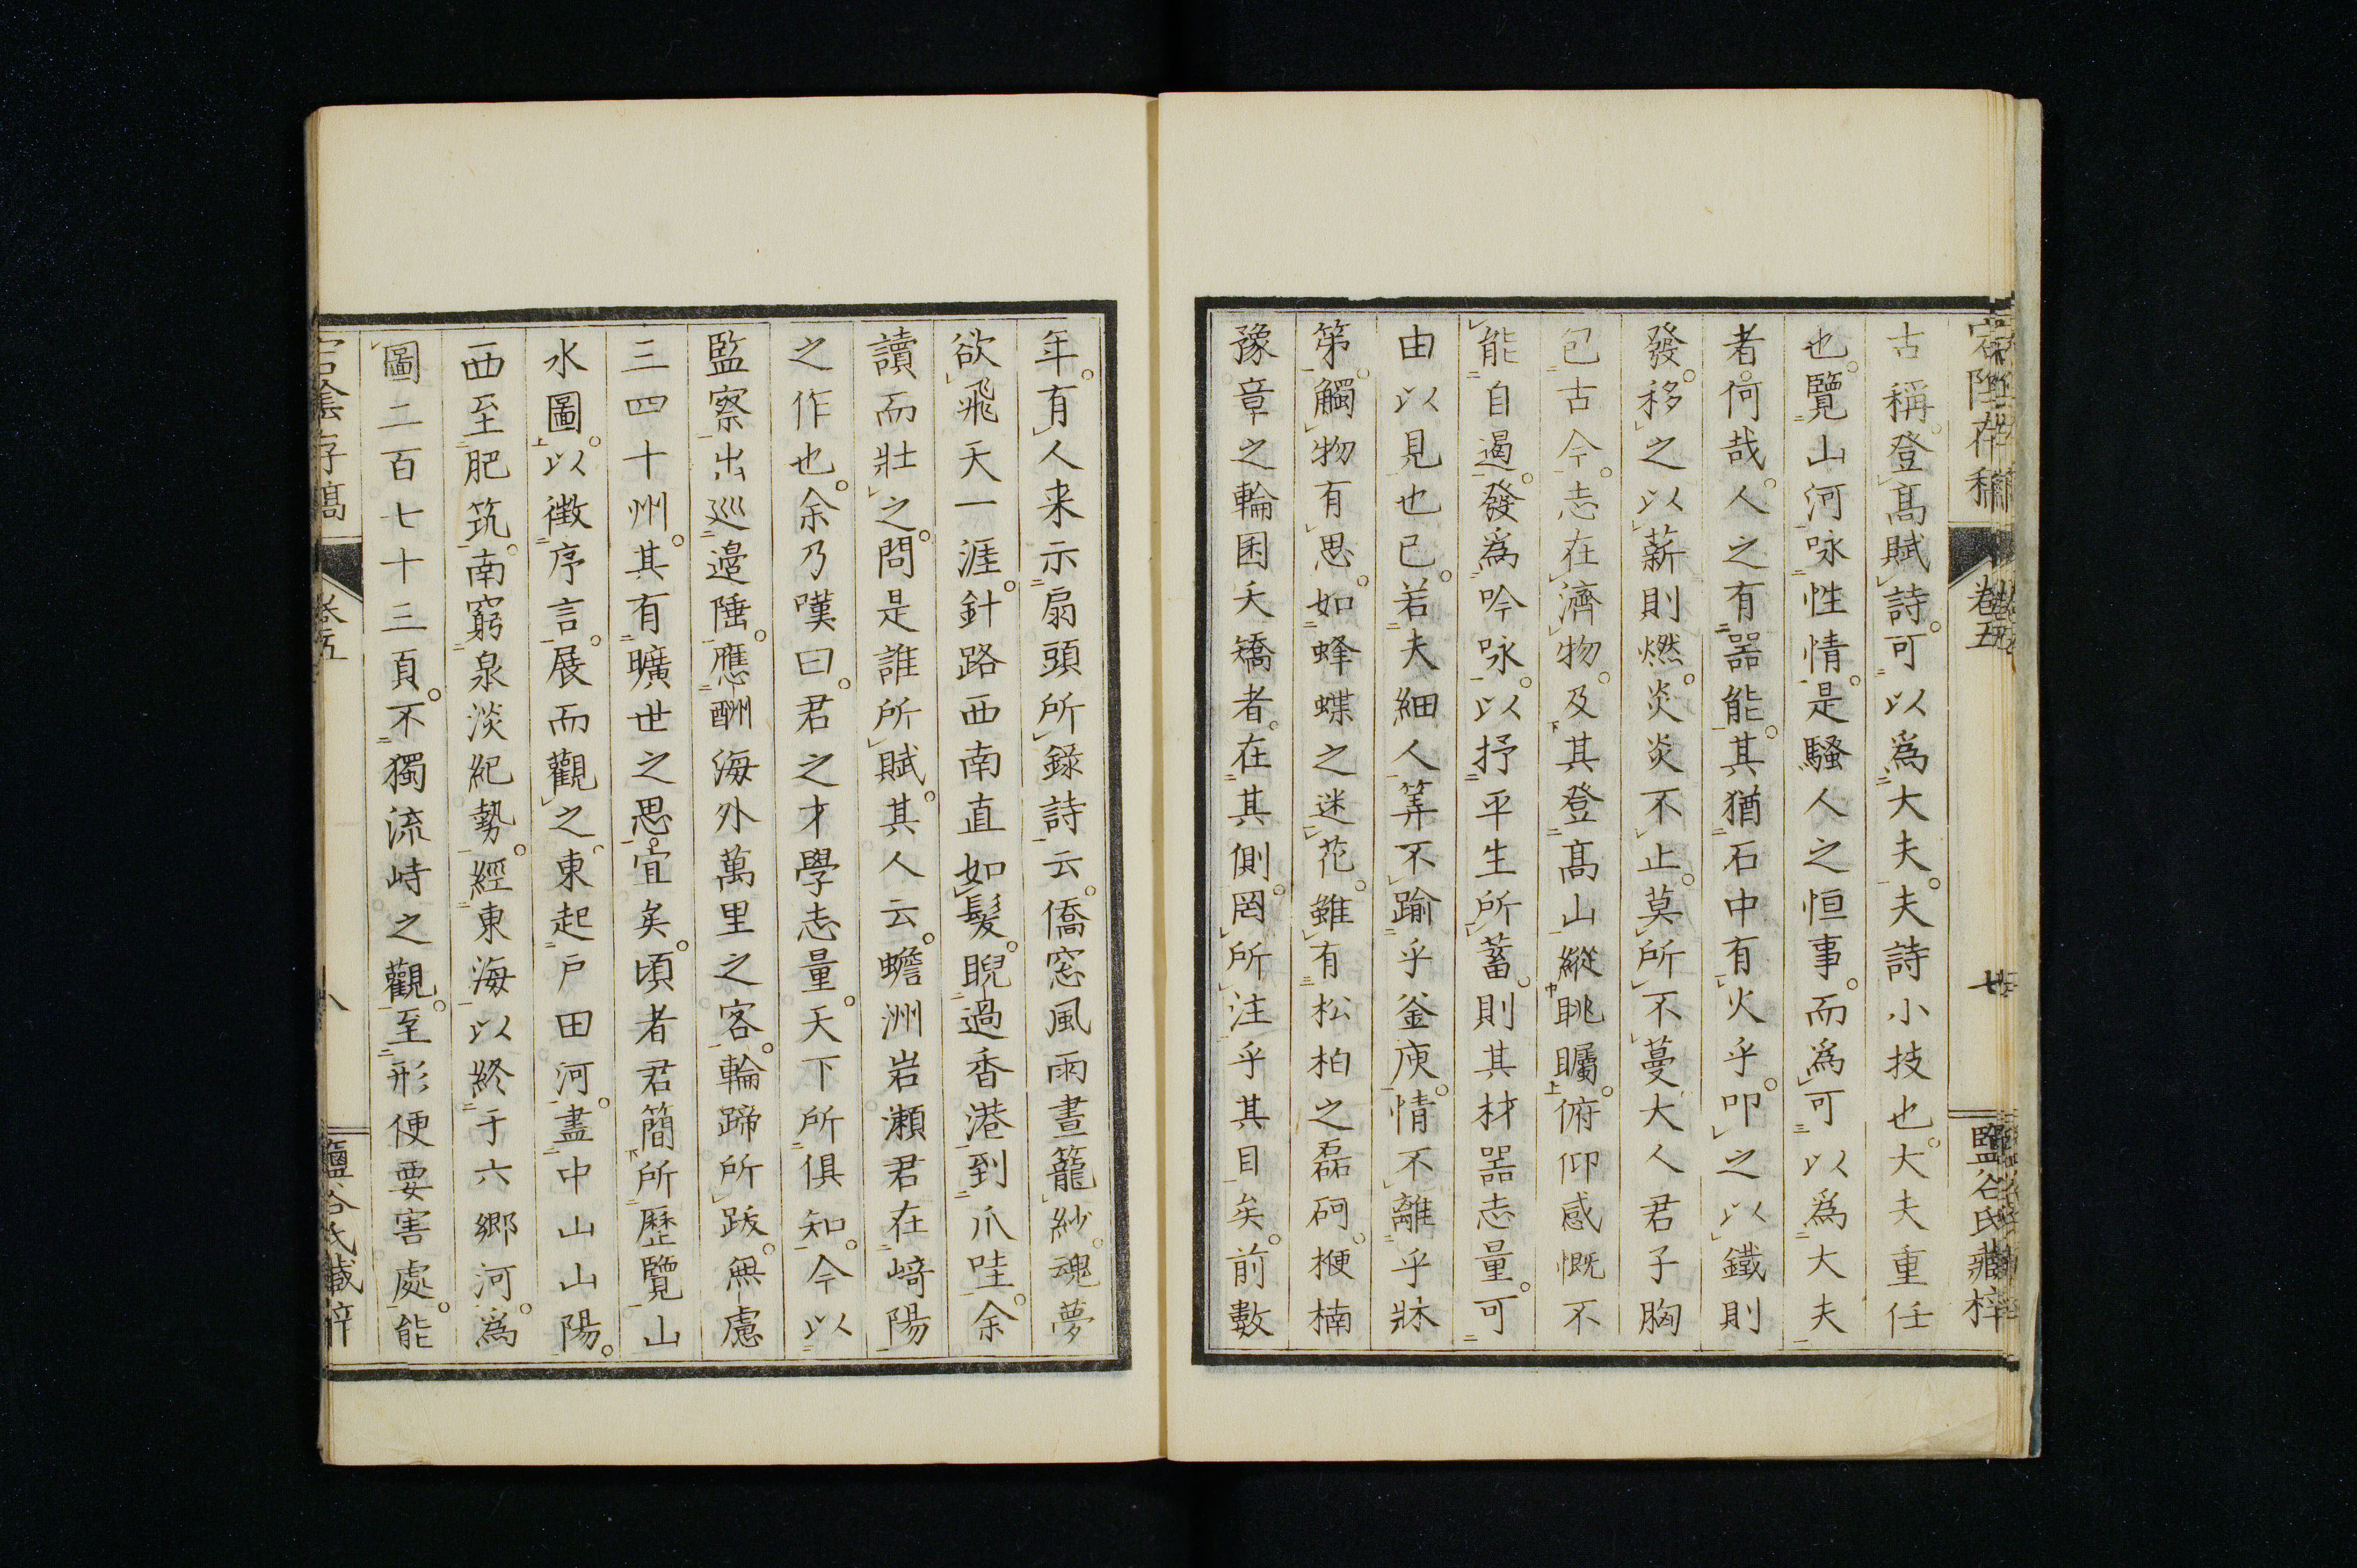 古稱登髙賦詩可以爲大夫夫詩小技也大夫重任
也覽山河咏性情是騷人之恒事而爲可以爲大夫
者何哉人之有器能其猶石中有火乎叩之以鐵則
發移之以薪則燃炎炎不止莫所不蔓大人君子胸
包古今志在濟物及其登髙山縱眺矚俯仰感慨不
能自遏發爲吟咏以抒平生所蓄則其材器志量可
由以見也已若夫細人筭不踰乎釜庾情不離乎牀
第觸物有思如蜂蝶之迷花雖有松柏之磊砢楩楠
豫章之輪囷夭矯者在其側罔所注乎其目矣前數
年有人来示扇頭所錄詩云僑窓風雨晝籠紗魂夢
欲飛天一涯針路西南直如髮睨過香港到爪哇余
讀而壯之問是誰所賦其人云蟾洲岩瀨君在﨑陽
之作也余乃嘆曰君之才學志量天下所俱知今以
監察出巡邊陲應酬海外萬里之客輪蹄所跋無慮
三四十州其有曠世之思宜矣頃者君簡所歷覽山
水圖以徵序言展而觀之東起戶田河盡中山山陽
西至肥筑南窮泉淡紀勢經東海以終于六郷河爲
圖二百七十三頁不獨流峙之觀至形便要害處能
卷五
鹽谷氏藏梓